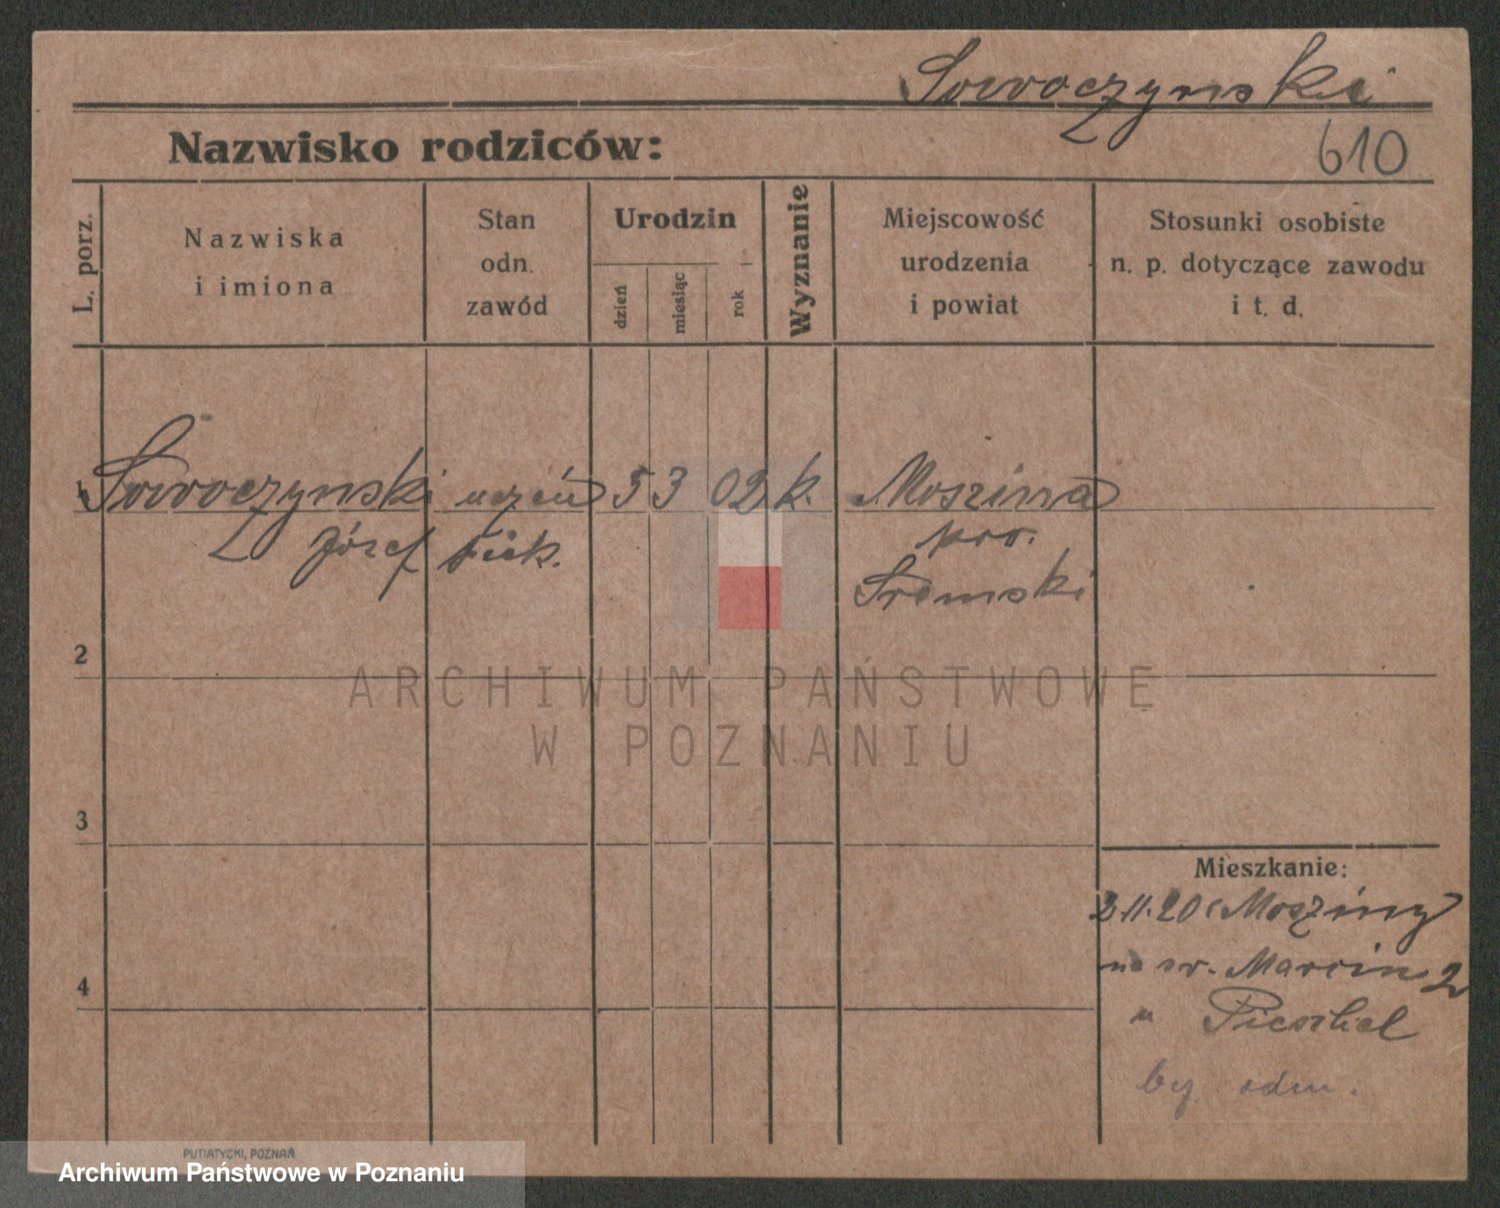 Sowoczynski
610
Nazwisko rodziców:
L. porz.
Nazwiska
i imiona
Stan
odn.
zawód
Urodzin
dzień
miesiąc
rok
Wyznanie
Miejscowość
urodzenia
i powiat
Stosunki osobiste
n. p. dotyczące zawodu
i t. d.
1 Sowoczynski uczeń 5 3 02 k. Moszina
Józef piek. pow.
Śremski
2
ARCHIWUM PAŃSTWOWE
W POZNANIU
3
Mieszkanie:
2.11.20 Mosziny
na św. Marcin 2
u Pieschel
4
PUTIATYCKI, POZNAŃ
Archiwum Państwowe w Poznaniu